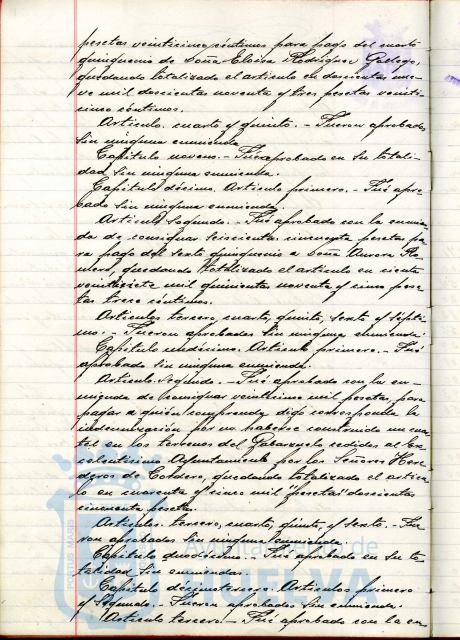 pesetas veinticinco céntimos para pago del cuarto
quinquenio de Doña Eloisa Rodríguez Gallego,
quedando totalizado el artículo en doscientas nue-
ve mil doscientas noventa y tres pesetas veinti-
cinco céntimos.
Artículo cuarto y quinto.- Fueron aprobados
sin ninguna enmienda.
Capítulo noveno.- Fué aprobado en su totali-
dad sin ninguna enmienda.
Capítulo décimo. Artículo primero.- Fué apro-
bado sin ninguna enmienda.
Artículo Segundo.- Fué aprobado con la enmien-
da de consignar seiscientas cincuenta pesetas pa-
ra pago del sexto quinquenio a Doña Aurora Ro-
mero, quedando totalizado el artículo en ciento
veintisiete mil quinientas noventa y cinco pese-
tas trece céntimos.
Artículos tercero, cuarto, quinto, sexto y sépti-
mo.- Fueron aprobados sin ninguna enmienda.
Capítulo undécimo. Artículo primero.- Fué
aprobado sin ninguna enmienda.
Artículo Segundo.- Fué aprobado con la en-
mienda de consignar veintinueve mil pesetas, para
pagar a quién comprenda, digo corresponda la
indemnización por no haberse construido un cuar-
tel en los terrenos del cedidos al Ex-
celentísimo Ayuntamiento por los Señores Here-
deros de Cordero, quedando totalizado el artícu-
lo en cuarenta y cinco mil "pesetas" doscientas
cincuenta pesetas.
Artículos tercero, cuarto, quinto, y sexto.- Fue-
ron aprobados sin ninguna enmienda.
Capítulo duodécimo.- Fué aprobado en su to-
talidad sin enmiendas.
Capítulo décimotercero. Artículos primero
y Segundo.- Fueron aprobados sin enmienda.
Artículo tercero.- Fué aprobado con la en-
PORTUS MARIS
Ayuntamiento de
HUELVA